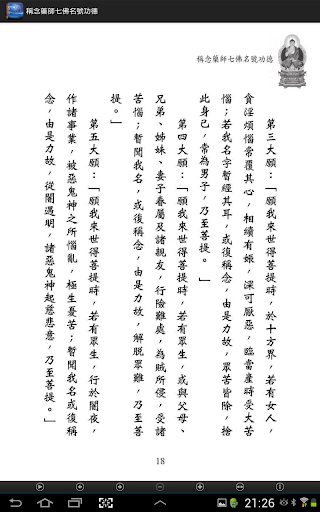 稱念藥師七佛名號功德
稱念藥師七佛名號功德
第三大願：「願我來世得菩提時，於十方界，若有女人，
貪淫煩惱常覆其心，相續有娠，深可厭惡，臨當產時受大苦
惱；若我名字暫經其耳，或復稱念，由是力故，眾苦皆除，捨
此身已，常為男子，乃至菩提。」
第四大願：「願我來世得菩提時，若有眾生，或與父母、
兄弟、姊妹、妻子眷屬及諸親友，行險難處，為賊所侵，受諸
苦惱；暫聞我名，或復稱念，由是力故，解脫眾難，乃至菩
提。」
第五大願：「願我來世得菩提時，若有眾生，行於闇夜，
作諸事業，被惡鬼神之所惱亂，極生憂苦；暫聞我名或復稱
念，由是力故，從闇遇明，諸惡鬼神起慈悲意，乃至菩提。」
18
21:26